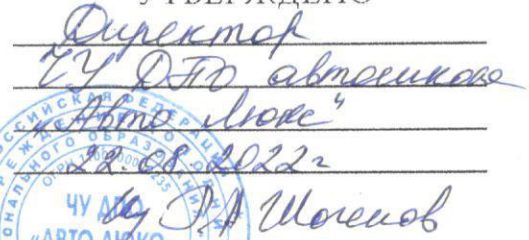 УТВЕРЖДЕНО
Директор
ЧУ ДПО автошкола
"Авто Люкс"
22.08.2022г
Р.А Шогенов
ЧУ ДПО
"АВТО ЛЮКС